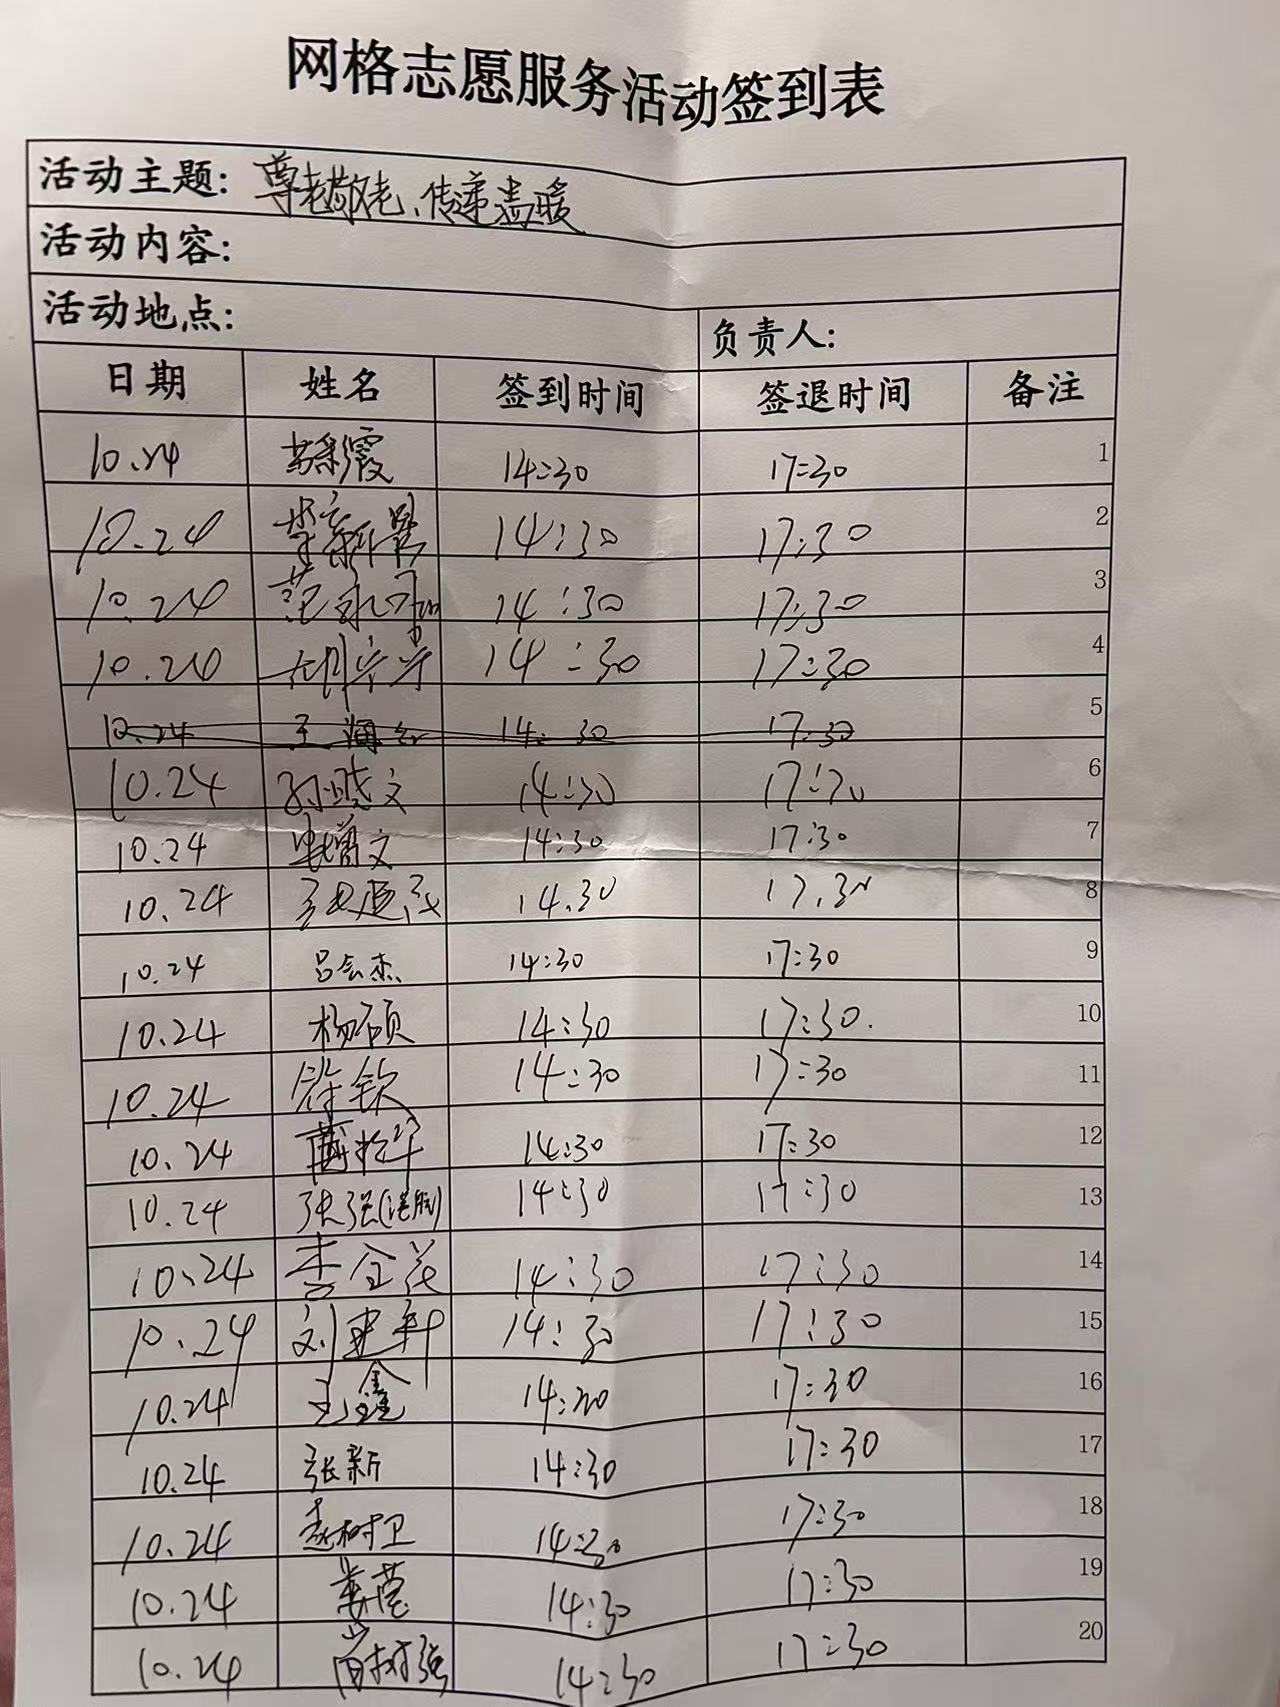 网格志愿服务活动签到表
活动主题: 尊老敬老、传递温暖
活动内容:
活动地点:
负责人:
日期 姓名 签到时间 签退时间 备注
10.24 14:30 17:30 1
10.24 14:30 17:30 2
10.24 14:30 17:30 3
10.24 14:30 17:30 4
10.24 14:30 17:30 5
10.24 孙晓文 14:30 17:30 6
10.24 14:30 17:30 7
10.24 14.30 17.30 8
10.24 吕会杰 14:30 17:30 9
10.24 杨硕 14:30 17:30. 10
10.24 徐钦 14:30 17:30 11
10.24 14:30 17:30 12
10.24 张强 14:30 17:30 13
10.24 李全花 14:30 17:30 14
10.24 刘建新 14:30 17:30 15
10.24 王鑫 14:30 17:30 16
10.24 张新 14:30 17:30 17
10.24 赵树卫 14:30 17:30 18
10.24 14:30 17:30 19
10.24 14:30 17:30 20